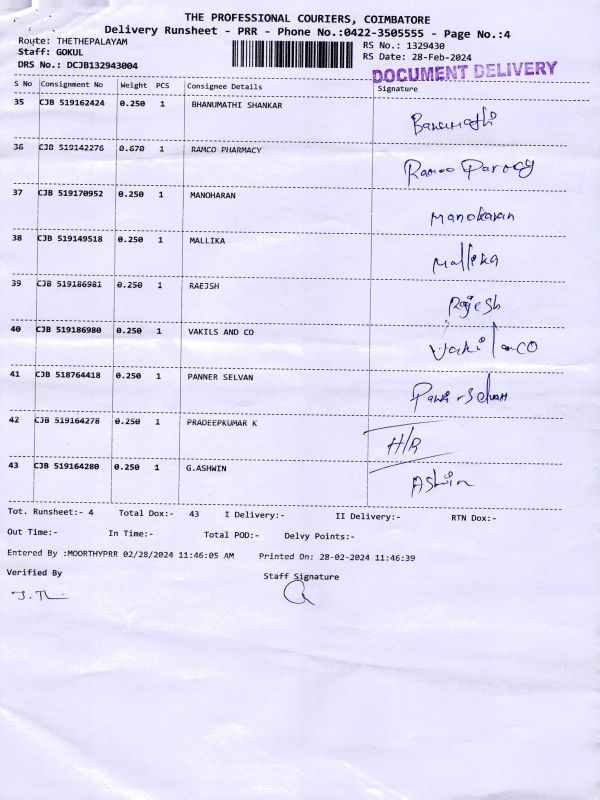 THE PROFESSIONAL COURIERS, COIMBATORE
Delivery Runsheet - PRR - Phone No.:0422-3505555 - Page No.:4
Route: THETHEPALAYAM RS No.: 1329430
Staff: GOKUL RS Date: 28-Feb-2024
DRS No.: DCJB132943004 DOCUMENT DELIVERY
S No Consignment No Weight PCS Consignee Details Signature
35 CJB 519162424 0.250 1 BHANUMATHI SHANKAR Banumathi
36 CJB 519142276 0.670 1 RAMCO PHARMACY Ramco
37 CJB 519170952 0.250 1 MANOHARAN Manokaran
38 CJB 519149518 0.250 1 MALLIKA Mallika
39 CJB 519186981 0.250 1 RAEJSH Rajesh
40 CJB 519186980 0.250 1 VAKILS AND CO
41 CJB 518764418 0.250 1 PANNER SELVAN
42 CJB 519164278 0.250 1 PRADEEPKUMAR K H/R
43 CJB 519164280 0.250 1 G.ASHWIN Ashwin
Tot. Runsheet:- 4 Total Dox:- 43 I Delivery:- II Delivery:- RTN Dox:-
Out Time:- In Time:- Total POD:- Delvy Points:-
Entered By :MOORTHYPRR 02/28/2024 11:46:05 AM Printed On: 28-02-2024 11:46:39
Verified By Staff Signature